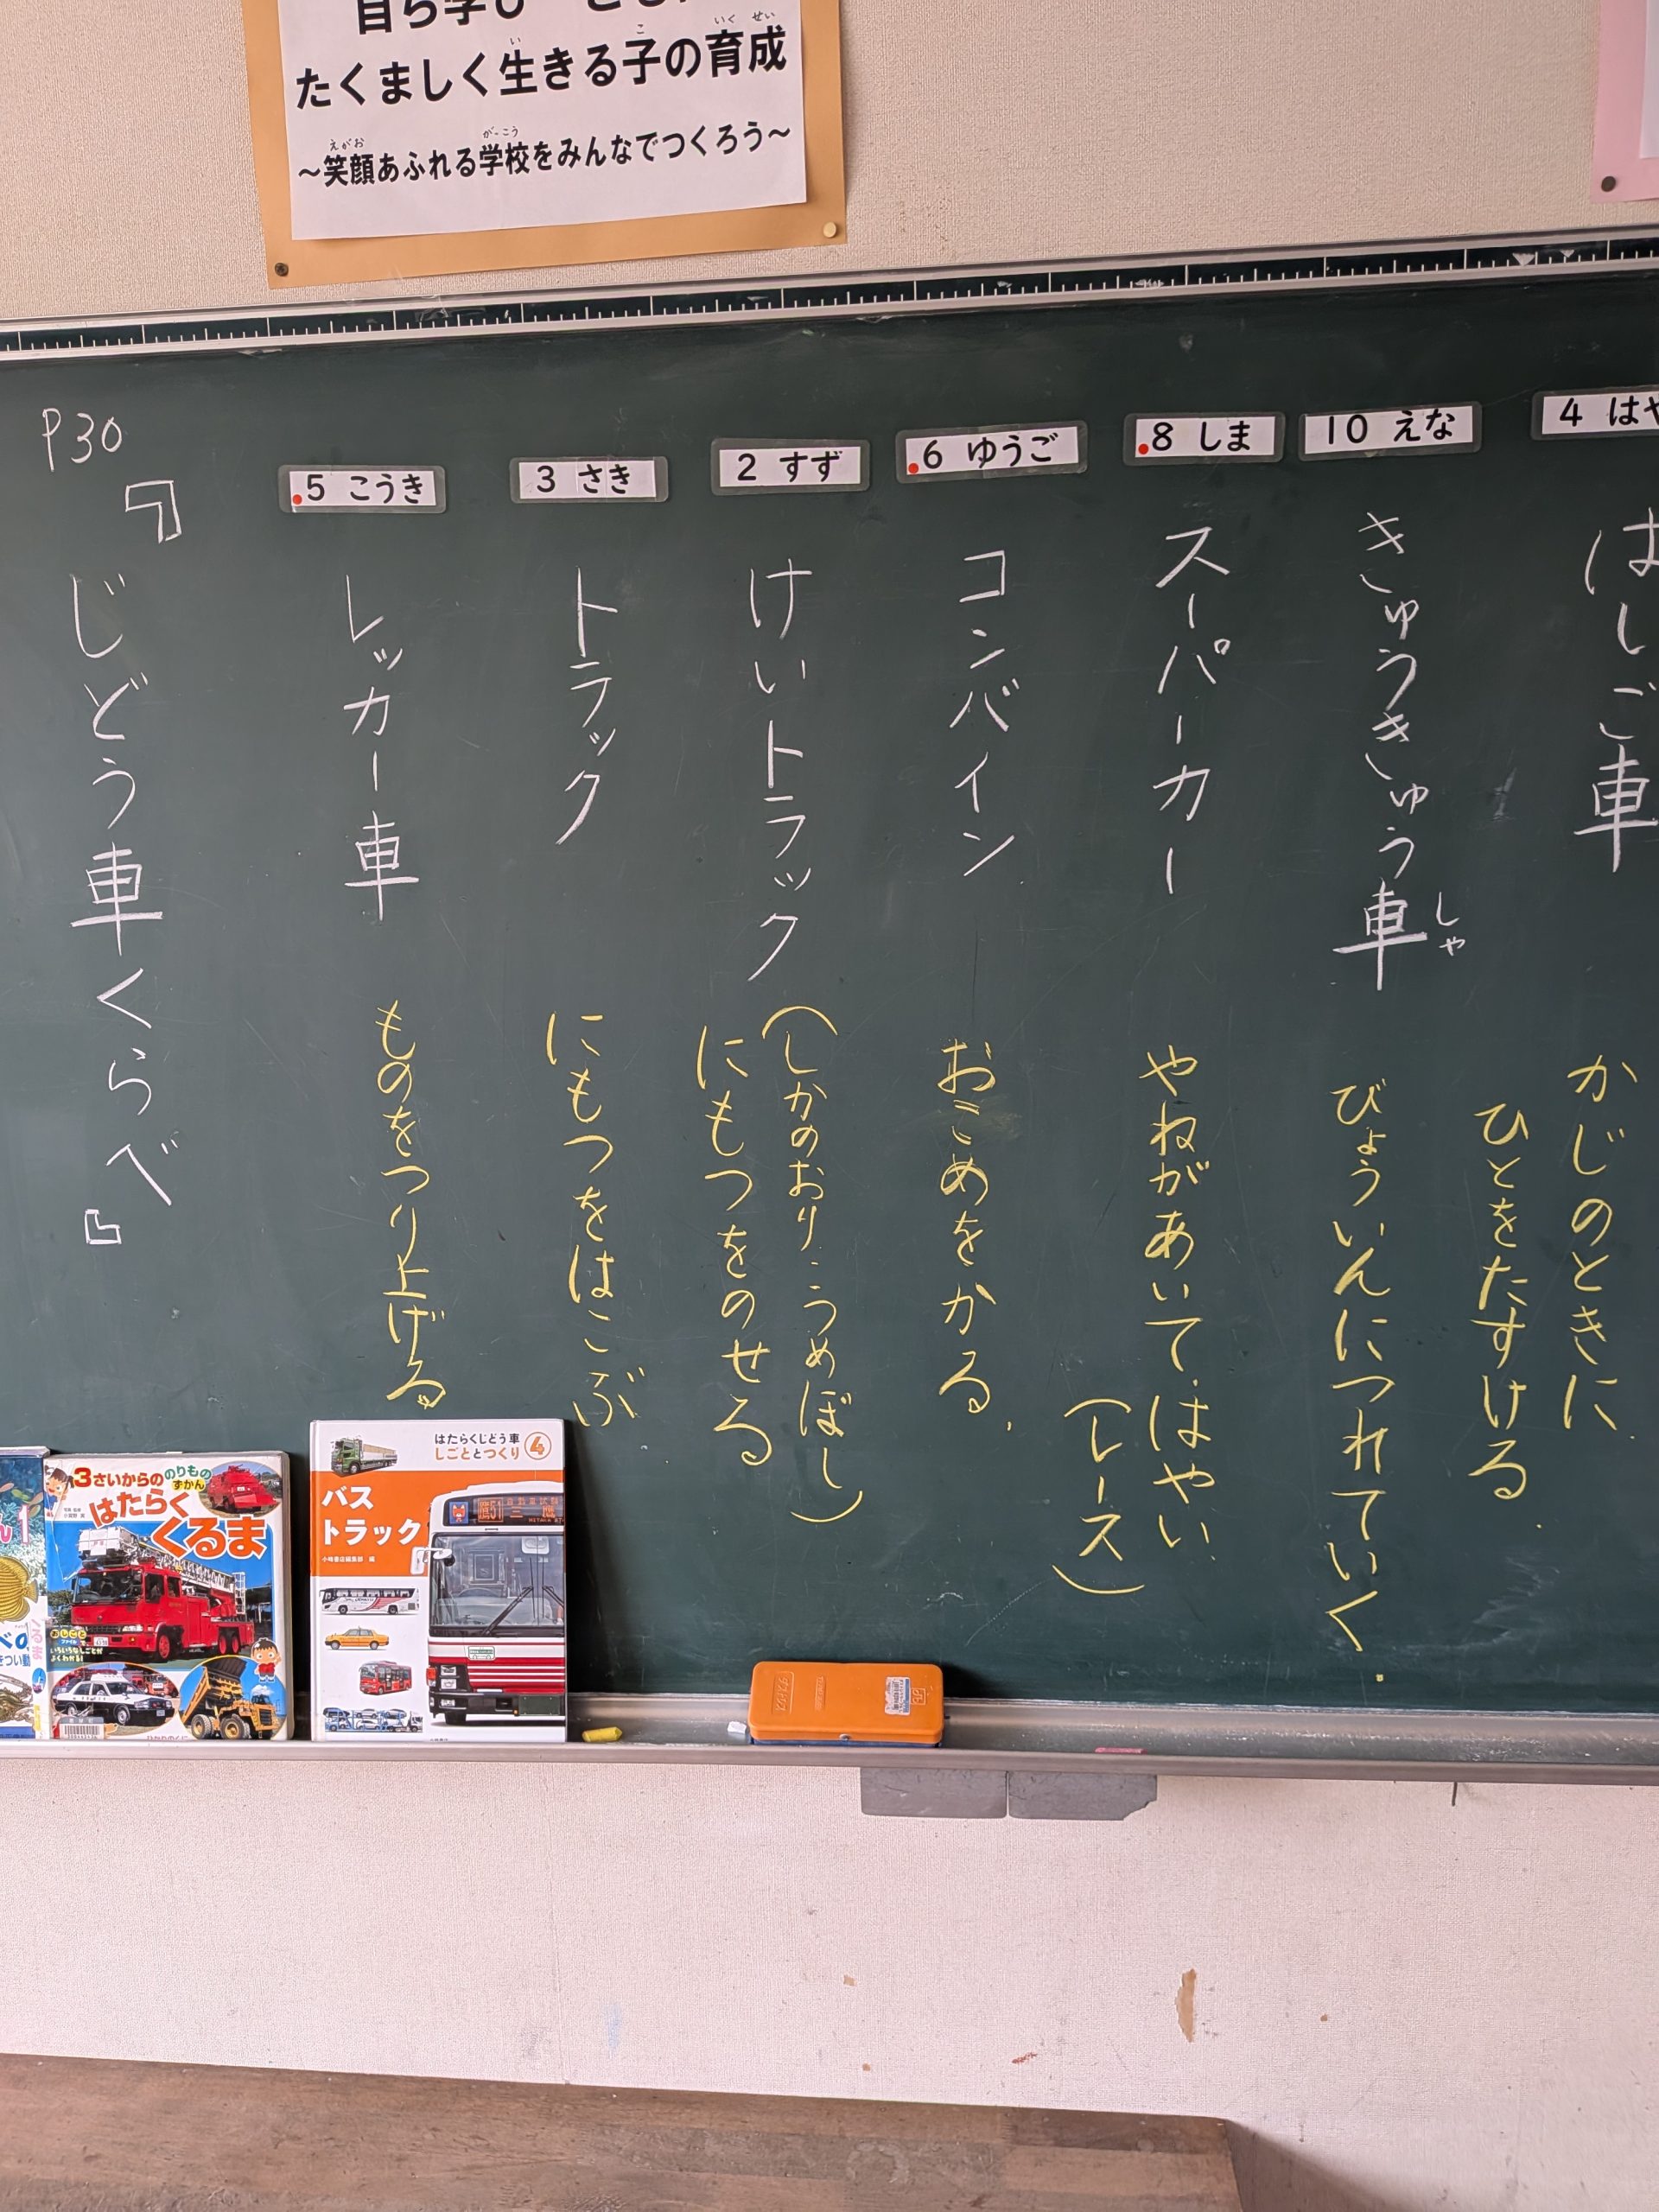 たくましく生きる子の育成
～笑顔あふれる学校をみんなでつくろう～
はしご車
かじのときに
ひとをたすける
10 えな
きゅうきゅう車
しゃ
びょういんにつれていく
.8 しま
スーパーカー
やねがあいて.はやい
(レース)
.6 ゆうご
コンバイン
おこめをかる
2 すず
けいトラック
(しかのおり.うめぼし)
にもつをのせる
3 さき
トラック
にもつをはこぶ
.5 こうき
レッカー車
ものをつり上げる
P30
『じどう車くらべ』
3さいからののりものずかん
はたらくくるま
はたらくじどう車
しごととつくり4
バス
トラック
小峰書店編集部 編